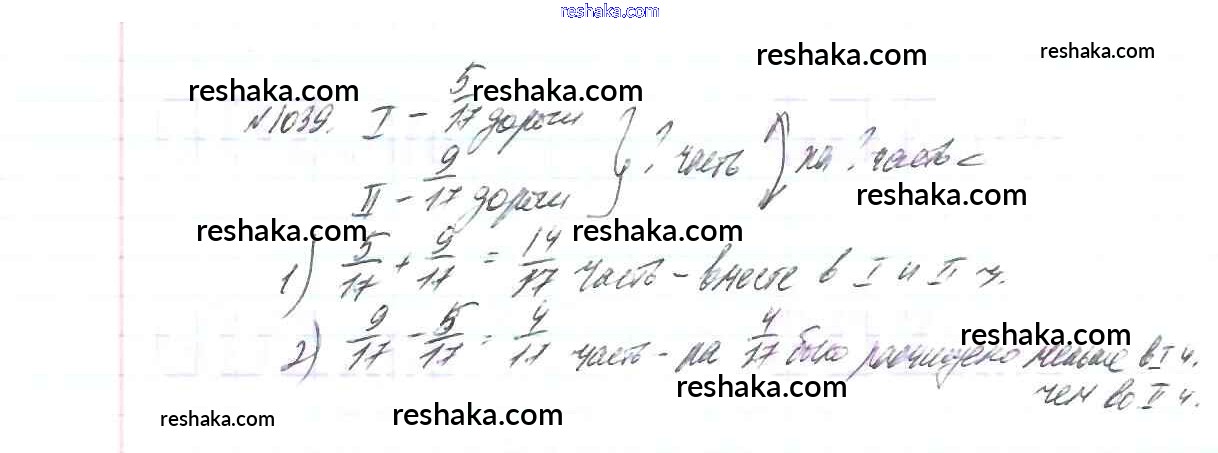 reshaka.com
reshaka.com reshaka.com
reshaka.com reshaka.com reshaka.com
№1039. I – 5/17 дороги } ? часть ) на ? часть <
II – 9/17 дороги
reshaka.com
reshaka.com reshaka.com
1) 5/17 + 9/17 = 14/17 часть – вместе в I и II ч.
2) 9/17 – 5/17 = 4/17 часть – на 4/17 было расчищено меньше в I ч.
чем во II ч.
reshaka.com
reshaka.com
reshaka.com reshaka.com